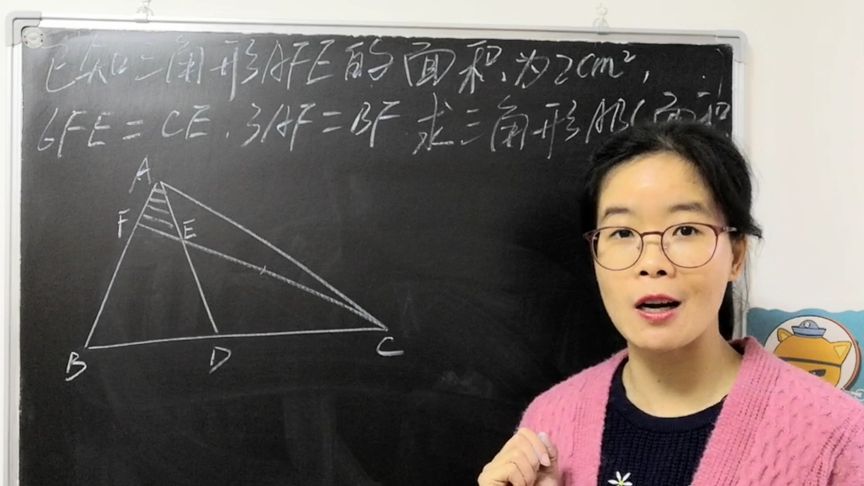 已知三角形AFE的面积为2cm²,
6FE=CE.3AF=BF 求三角形ABC面积
A
F
E
B
D
C